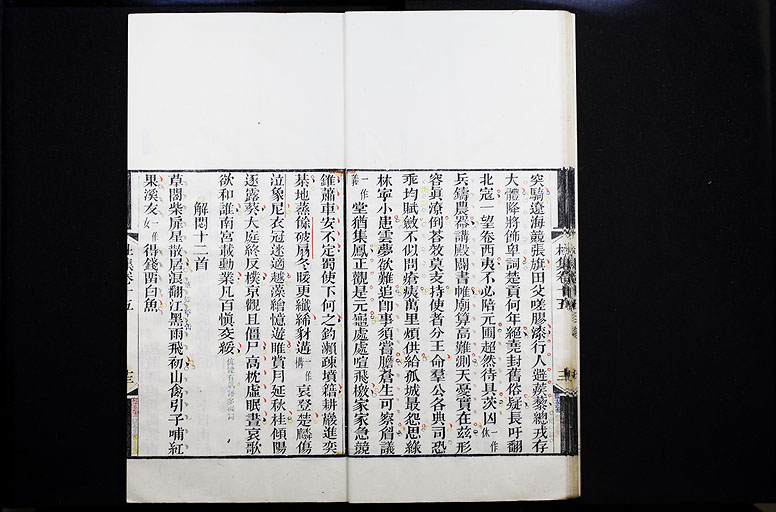 突騎遼海競張旗田父嗟膠漆行人避蒺藜總戎存
大體降將飾卑詞楚貢何年絕堯封舊俗疑長吁翻
北寇一望卷西夷不必陪元圃超然待具茨凶一作休
兵鑄農器講殿闢書帷廟算高難測天憂實在茲形
容真潦倒答效莫支持使者分王命羣公各典司恐
乖均賦斂不似問瘡痍萬里煩供給孤城最怨思綠
林寧小患雲夢欲難追即事須嘗膽蒼生可察眉議
一作義堂猶集鳳正觀是元龜處處喧飛檄家家急競
錐蕭車安不定蜀使下何之釣瀨疎墳籍耕巖進奕
棊地蒸餘破扇冬暖更纖絺豺遘一作構哀登楚麟傷
泣象尼衣冠迷適越藻繪憶遊睢賞月延秋桂傾陽
逐露葵大庭終反樸京觀且僵尸高枕虛眠晝哀歌
欲和誰南宮載勳業凡百愼交綏
解悶十二首
草閣柴扉星散居浪翻江黑雨飛初山禽引子哺紅
果溪友一作女得錢留白魚
杜集卷十五